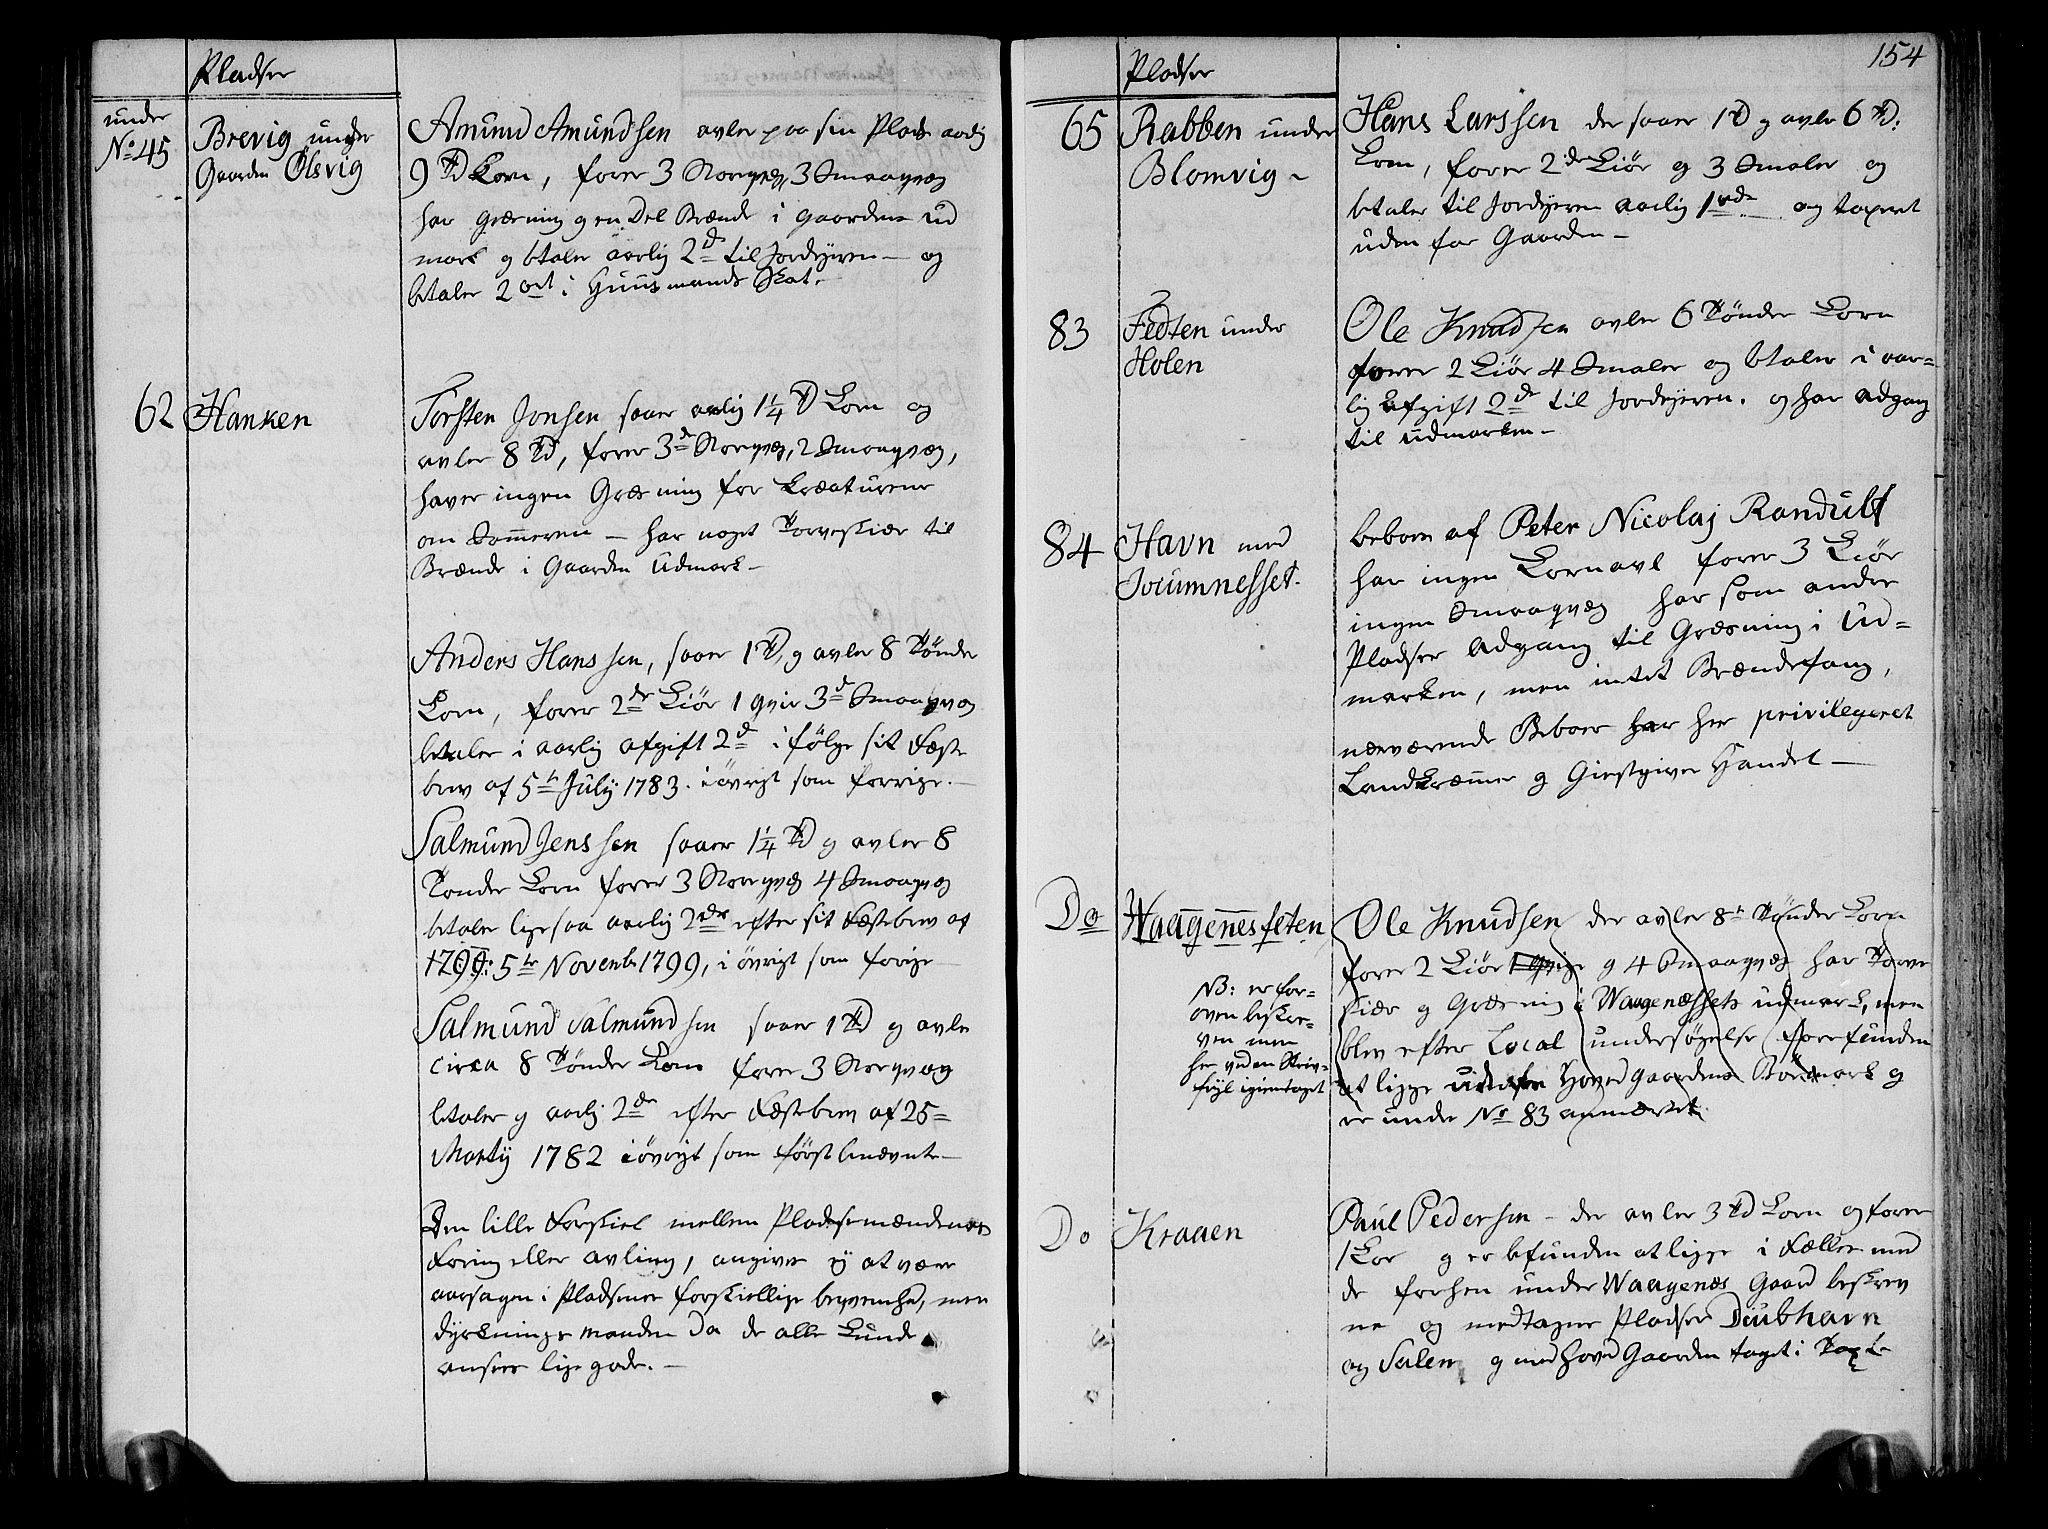 Pladser
under
No 45
Brevig under
Gaarden Ølsvig
Amund Amundsen avler paa sin Plads aarlig
9 Td Korn, foder 3 Storqvæg, 3 Smaaqvæg
har Græsning og en Del Brænde i Gaardens Ud
mark og betaler aarlig 2 rd til Jordejeren - og
betaler 2 ort i Huusmands Skat.
62 Hanken
Torsten Jonsen saaer aarlig 1 1/4 Td Korn og
avler 8 Td, foder 3 de Storqvæg, 2 Smaaqvæg,
haver ingen Græsning for Kreaturene
om Sommeren - har noget Torveskiær til
Brænde i Gaarden Udmark -
Anders Hanssen, saaer 1 Td, og avler 8 Tønder
Korn, foder 2 de Kiør 1 qvie 3 d Smaaqvæg
betaler i aarlig afgift 2 d i følge sit Fæste
brev af 5 te July 1783. i øvrigt som forrige. -
Salmund Jenssen saaer 1 1/4 Td og avler 8
Tønder Korn foder 3 Storqvæg 4 Smaaqvæg
betaler ligesaa aarlig 2 rdr efter sit Fæstebrev af
1799: 5 te Novemb 1799, i øvrigt som forrige
Salmund Salmundsen saaer 1 Td og avler
circa 8 Tønder Korn foder 3 Storqvæg
betaler og aarlig 2 de efter Fæstebrev af 25 =
Martij 1782 i øvrigt som førstbenævnte -
Den lille Forskiel mellem Pladsemændenes
Foring eller avling, angives ej at være
aarsagen i Pladsenes forskiellige beqvemhed, men
dyrknings maaden da de alle kunde
ansees lige gode. -
154
Pladser
65 Rabben under
Blomvig -
Hans Larssen der saaer 1 Td og avler 6 Td:
Korn, foder 2 de Kiør og 3 Smaler og
betaler til Jordejeren aarlig 1 rd og taxeret
uden for Gaarden -
83 Fedten under
Holen
Ole Knudsen avler 6 Tønder Korn
foder 2 Kiør 4 Smaler og betaler i aar=
lig Afgift 2 de til Jordejeren. og har adgang
til Udmarken -
84 Havn med
Jocumnesset.
beboes af Peter Nicolaj Randulf
har ingen Kornavl foder 3 Kiør
ingen Smaaqvæg har som andre
Pladser Adgang til Græsning i Ud=
marken, men intet Brændefang,
nærværende Beboer har her privilegeret
Landkræmmer og Giestgiver Handel -
Do Waagenesfeten
NB: er for=
oven beskre=
ven men
her ved en Skriv=
fejl igientaget
Ole Knudsen der avler 8 t Tønder Korn
foder 2 Kiør 1 qvige og 4 Smaaqvæg har Torve
skiær og Græsning i Waagenæssets udmark, men
blev efter Local undersøgelse forefunden
at ligge uden for Hovedgaardens Bømark og
er under No 83 anmærket.
Do Kraaen
Paul Pedersen - der avler 3 Td Korn og foder
1 Koe og er befunden at ligge i Fælles med
de forhen under Waagenæs Gaard beskrev
ne og medtagne Pladser Diubhavn
og Salen og med Hoved Gaarden taget i Taxt